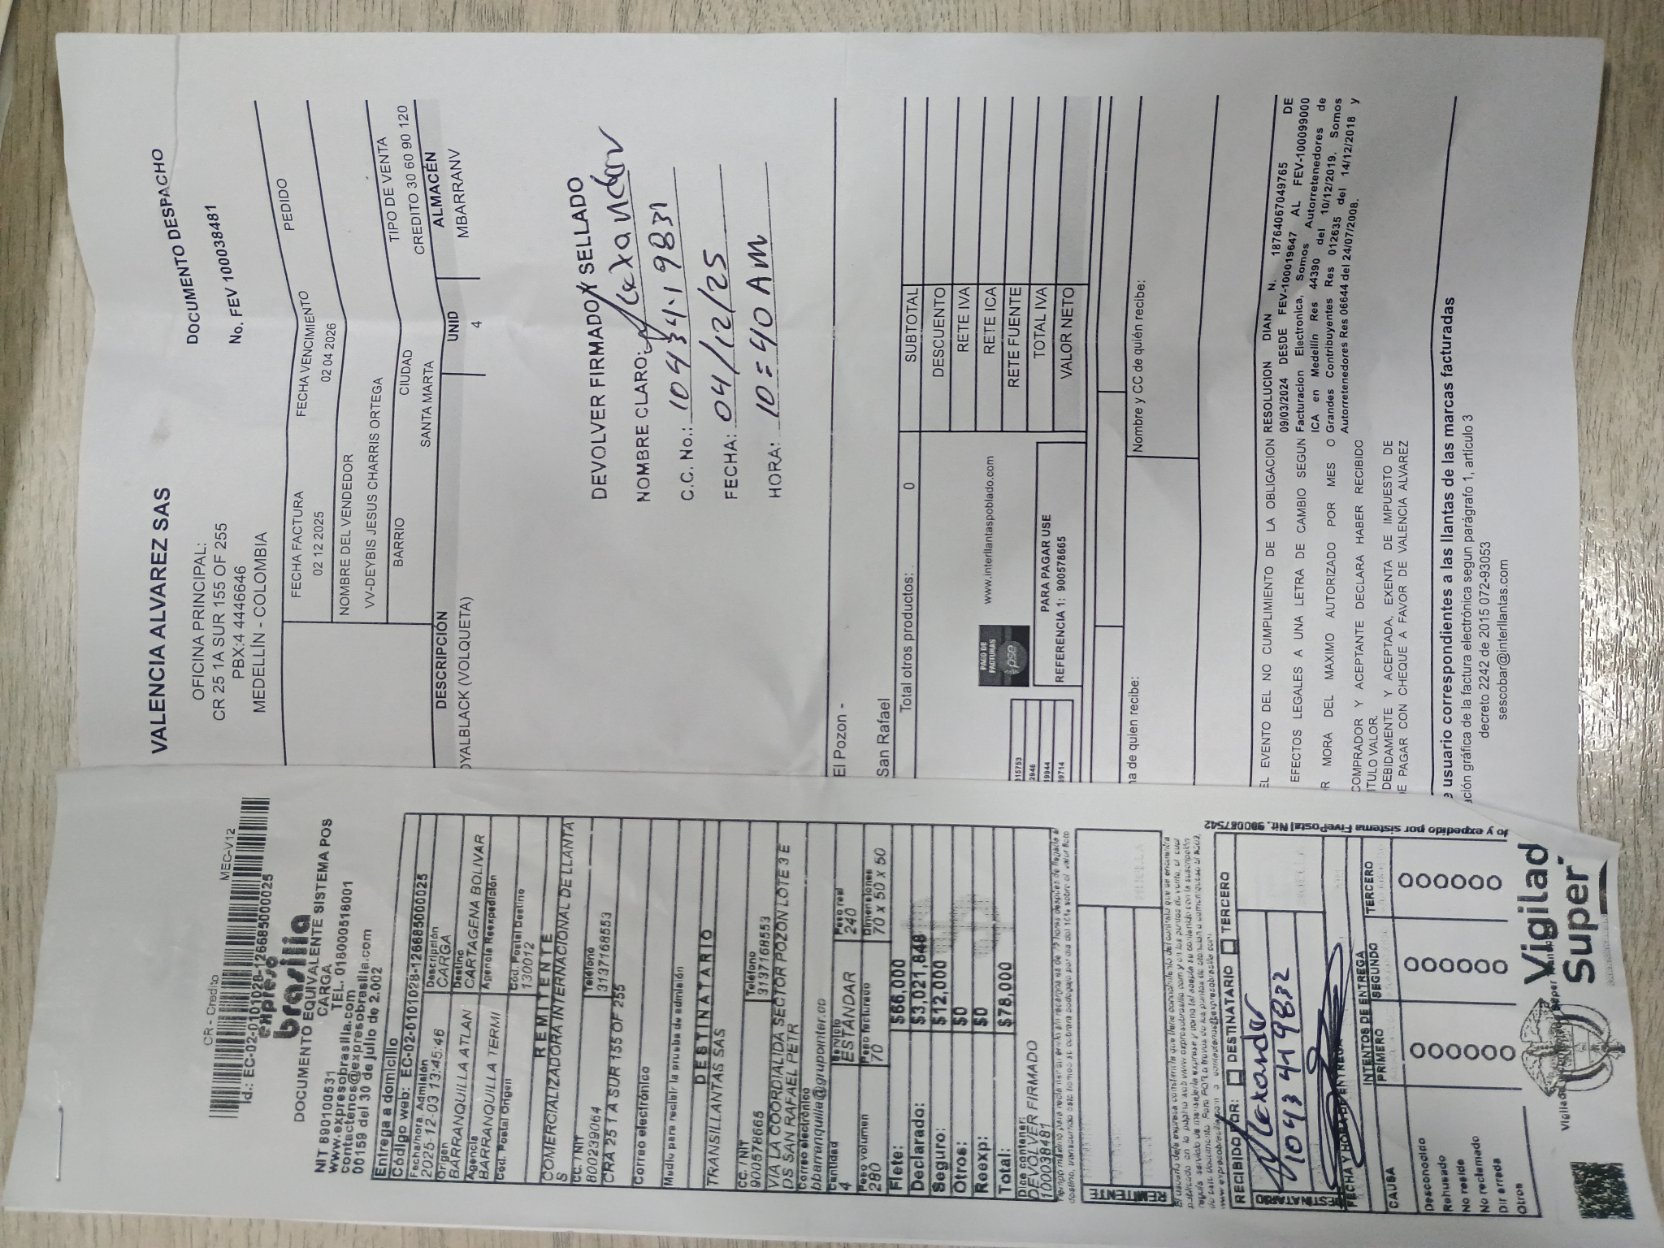 VALENCIA ALVAREZ SAS
OFICINA PRINCIPAL:
CR 25 1A SUR 155 OF 255
PBX:4 4446646
MEDELLÍN - COLOMBIA
DOCUMENTO DESPACHO
No. FEV 100038481
FECHA FACTURA
02 12 2025
FECHA VENCIMIENTO
02 04 2026
PEDIDO
NOMBRE DEL VENDEDOR
VV-DEYBIS JESUS CHARRIS ORTEGA
TIPO DE VENTA
CREDITO 30 60 90 120
BARRIO
CIUDAD
SANTA MARTA
ALMACÉN
MBARRANV
DESCRIPCIÓN
UNID
OYALBLACK (VOLQUETA)
4
DEVOLVER FIRMADO Y SELLADO
NOMBRE CLARO: Alexander
C.C. No.: 1043419831
FECHA: 04/12/25
HORA: 10:40 AM
El Pozon -
San Rafael
Total otros productos: 0
SUBTOTAL
DESCUENTO
RETE IVA
RETE ICA
RETE FUENTE
TOTAL IVA
VALOR NETO
PAGO DE FACTURAS
pse
www.interllantaspoblado.com
PARA PAGAR USE
REFERENCIA 1: 900578665
15753
2846
19944
59714
na de quien recibe:
Nombre y CC de quién recibe:
EL EVENTO DEL NO CUMPLIMIENTO DE LA OBLIGACION
EFECTOS LEGALES A UNA LETRA DE CAMBIO SEGUN
R MORA DEL MAXIMO AUTORIZADO POR MES O
COMPRADOR Y ACEPTANTE DECLARA HABER RECIBIDO
TULO VALOR.
DEBIDAMENTE Y ACEPTADA, EXENTA DE IMPUESTO DE
E PAGAR CON CHEQUE A FAVOR DE VALENCIA ALVAREZ
RESOLUCION DIAN N. 18764067049765 DE
09/03/2024 DESDE FEV-100019647 AL FEV-100099000
Facturacion Electronica, Somos Autorretenedores de
ICA en Medellin Res 44390 del 10/12/2019, Somos
Grandes Contribuyentes Res 012635 del 14/12/2018 y
Autorretenedores Res 06644 del 24/07/2008.
e usuario correspondientes a las llantas de las marcas facturadas
ación gráfica de la factura electrónica segun parágrafo 1, articulo 3
decreto 2242 de 2015 072-93053
sescobar@interllantas.com
CR - Credito
MEC-V12
Id.: EC-02-0101028-126685000025
expreso
brasilia
DOCUMENTO EQUIVALENTE SISTEMA POS
CARGA
NIT 890100531 TEL. 018000518001
www.expresobrasilia.com
contactenos@expresobrasilia.com
00159 del 30 de julio de 2.002
Entrega a domicilio
Código web: EC-02-0101028-126685000025
Fecha/hora Admisión
2025-12-03 13:45:46
Descripción
CARGA
Origen
BARRANQUILLA ATLAN
Destino
CARTAGENA BOLIVAR
Agencia
BARRANQUILLA TERMI
Agencia Reexpedición
Cod. Postal Origen
Cod. Postal Destino
130012
REMITENTE
COMERCIALIZADORA INTERNACIONAL DE LLANTA
S
CC. / NIT
800239064
Teléfono
3137168553
CRA 25 1 A SUR 155 OF 255
Correo electrónico
Medio para recibir la prueba de admisión
DESTINATARIO
TRANSILLANTAS SAS
CC. / NIT
900578665
Teléfono
3137168553
VIA LA COORDIALIDA SECTOR POZON LOTE 3 E
DS SAN RAFAEL PETR
Correo electrónico
bbarranquilla@grupointer.co
Cantidad
4
Servicio
ESTANDAR
Peso real
240
Peso volumen
280
Peso facturado
70
Dimensiones
70 x 50 x 50
Flete: $66,000
Declarado: $3,021,848
Seguro: $12,000
Otros: $0
Reexp: $0
Total: $78,000
Dice contener:
DEVOLVER FIRMADO
100038481
REMITENTE
RECIBIDO POR: DESTINATARIO TERCERO
Alexander
1043449832
FECHA Y HORA DE ENTREGA
INTENTOS DE ENTREGA
CAUSA
PRIMERO
SEGUNDO
TERCERO
Desconocido
Rehusado
No reside
No reclamado
Dir errada
Otros
do y expedido por sistema FivePostal Nit. 900087542
Vigilad
Super